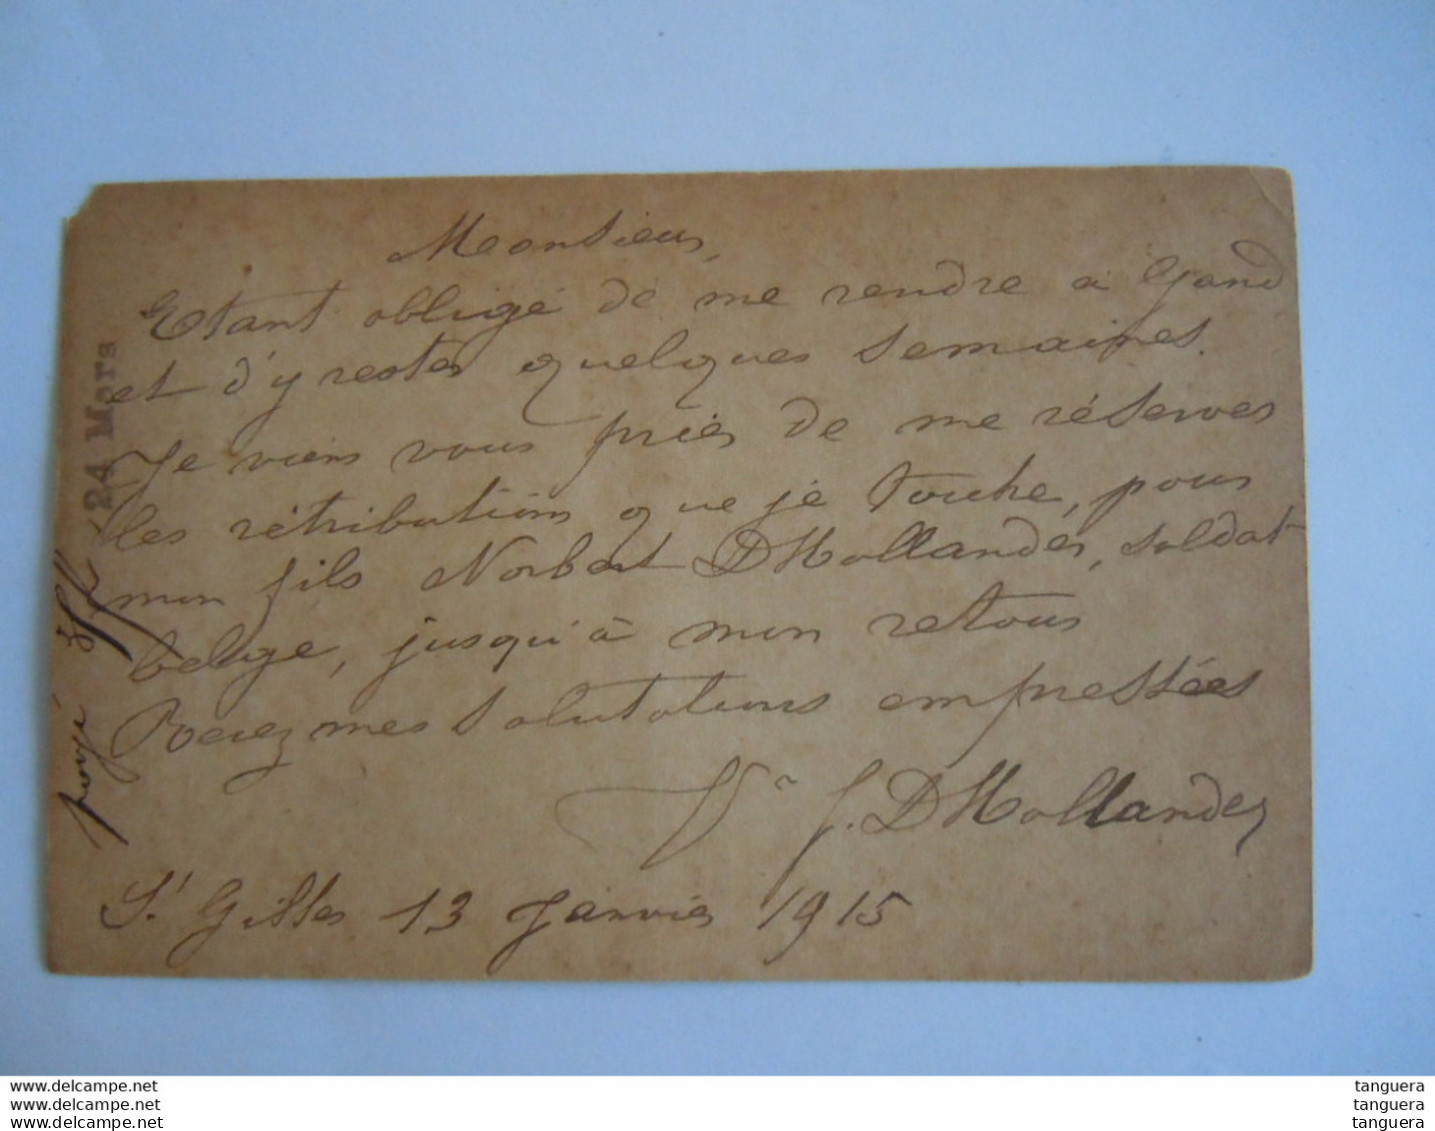 Monsieur,
Etant obligé de me rendre à Gand
et d'y rester quelques semaines.
Je viens vous prier de me réserver
les rétributions que je touche, pour
mon fils Norbert D'Hollander, soldat
belge, jusqu'à mon retour
Recez mes salutations empressées
J. D'Hollander
St Gilles 13 Janvier 1915
24 Mars
www.delcampe.net
www.delcampe.net
www.delcampe.net
tanguera
tanguera
tanguera